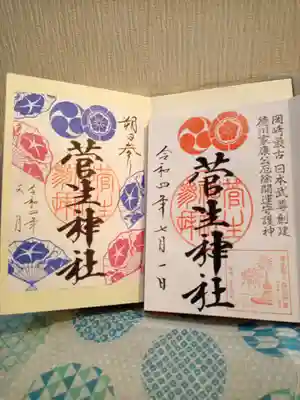 朔日参
菅生神社
令和四年
七月
岡崎最古 日本武尊創建
徳川家康公厄除開運守護神
菅生神社
令和四年七月一日